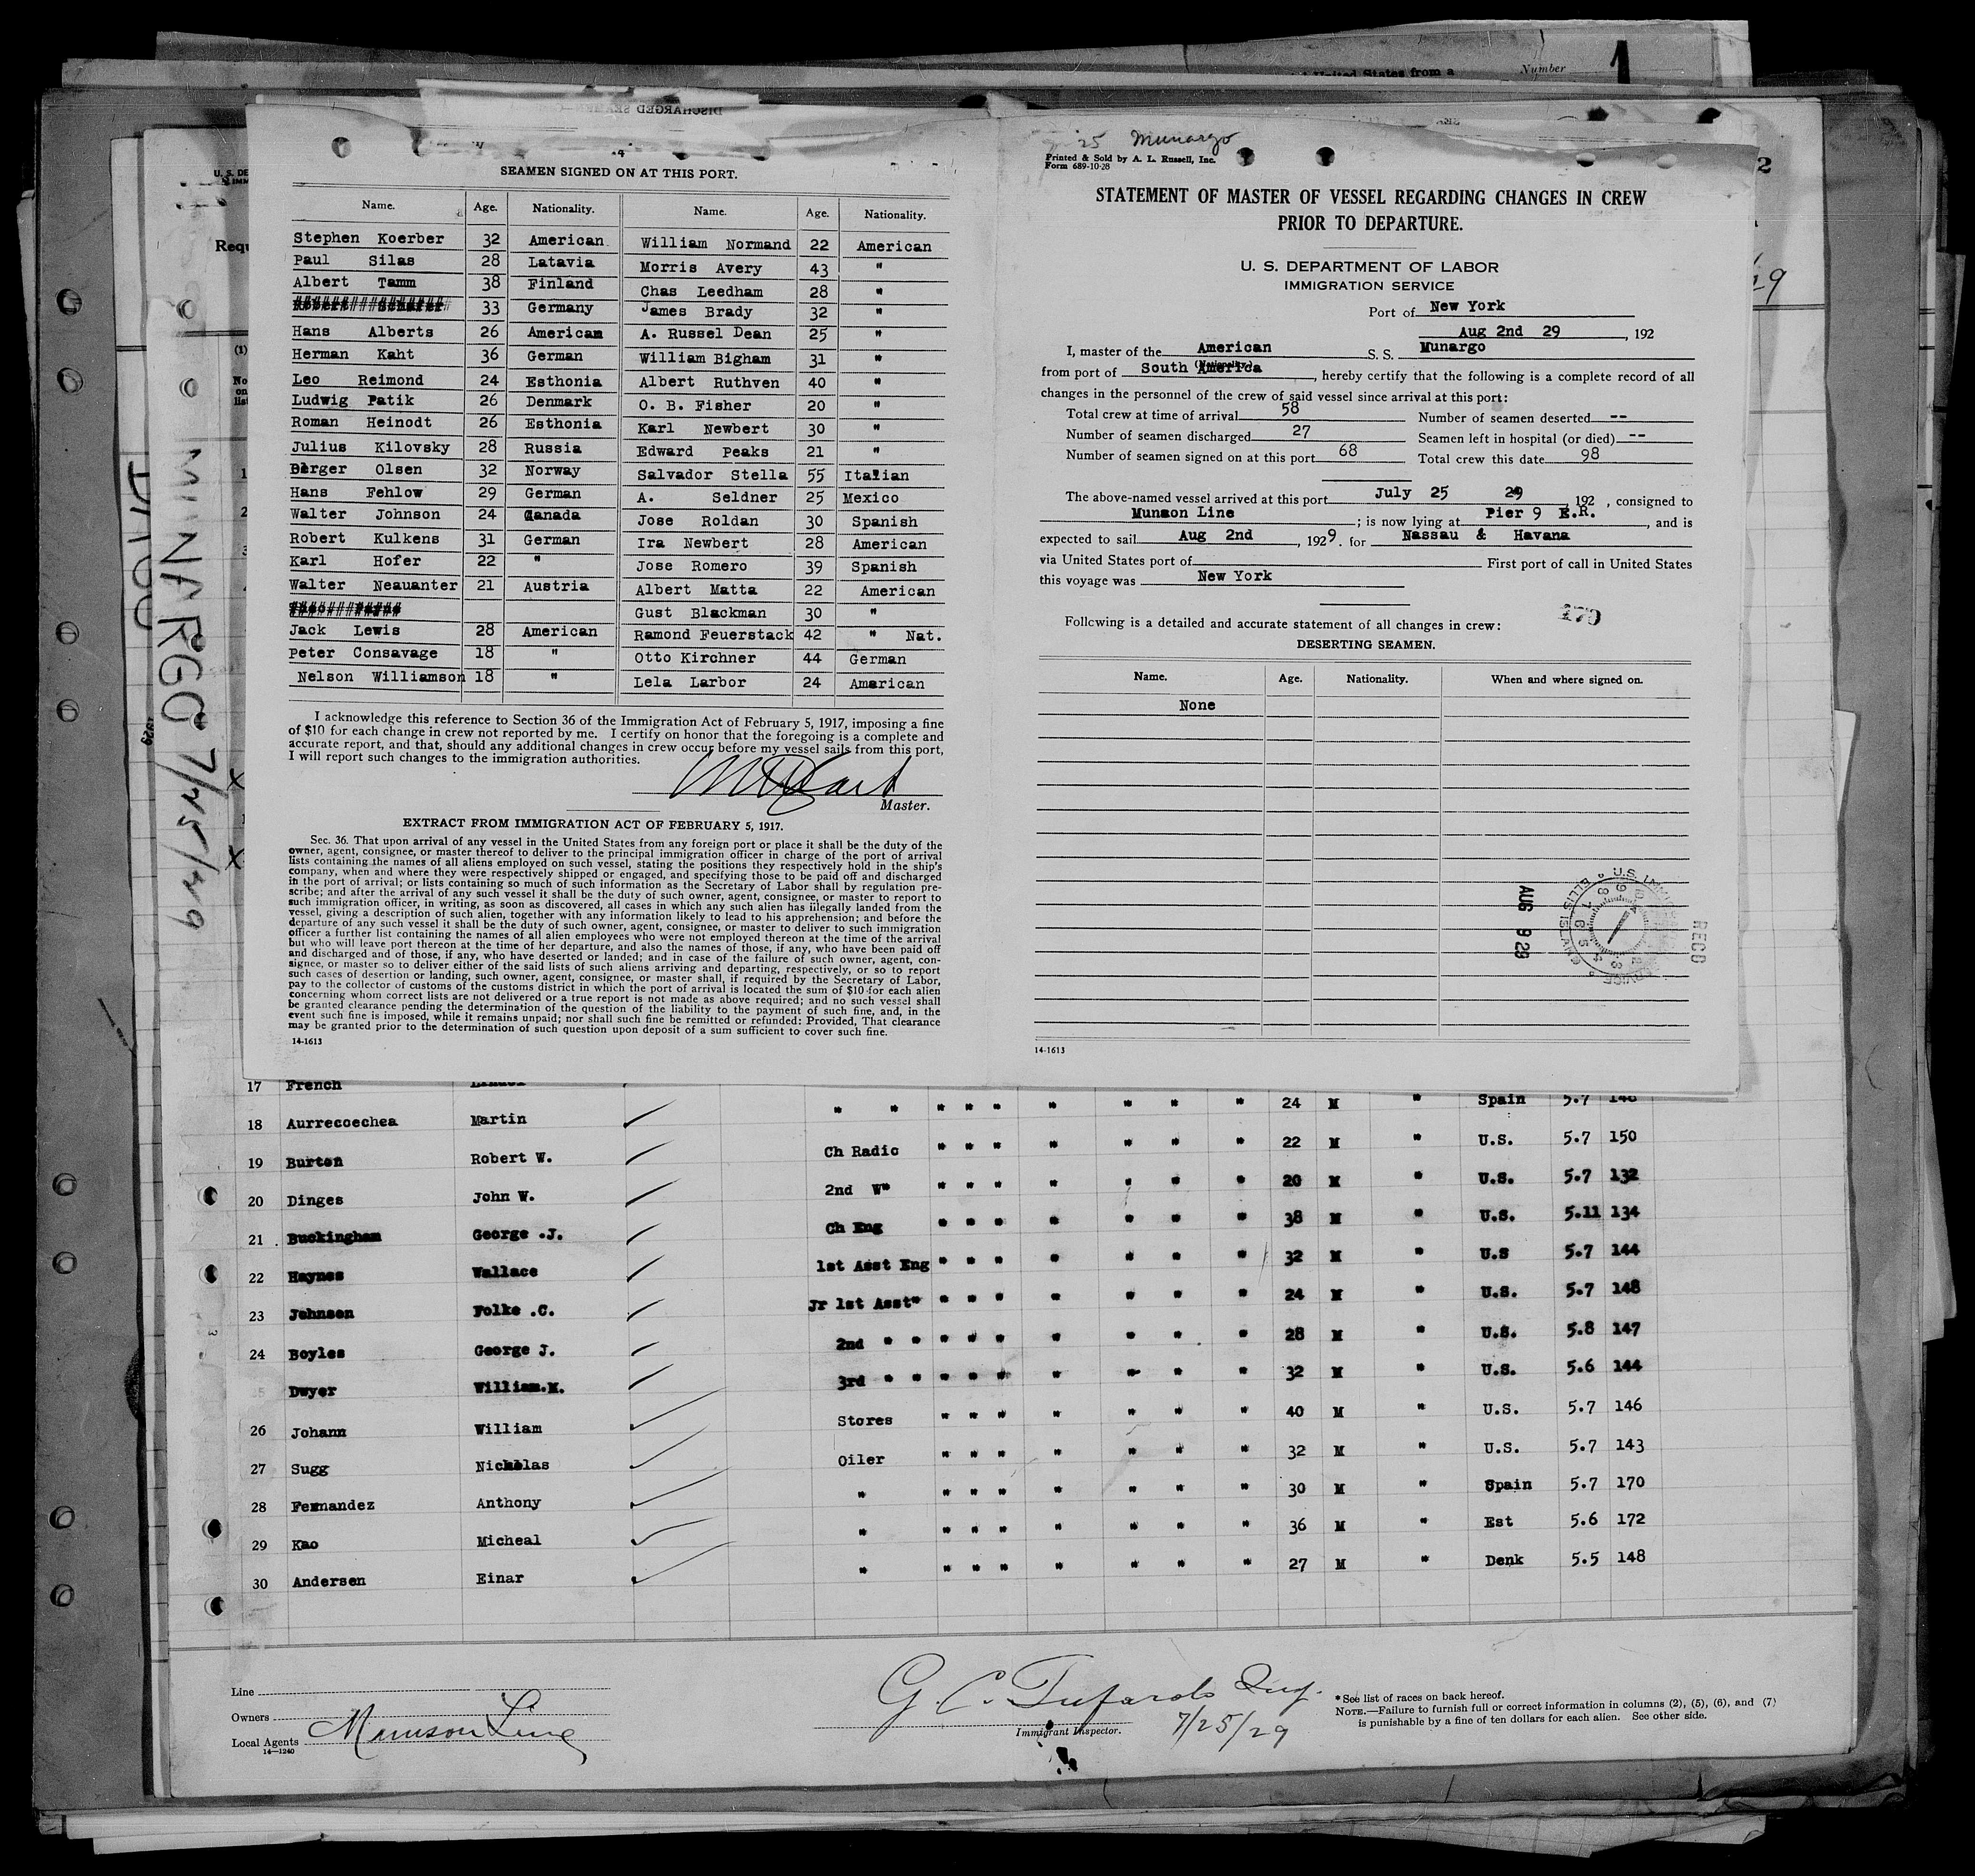 United States from a
Number 1
DISCHARGED SEAMEN
4
SEAMEN SIGNED ON AT THIS PORT.
Name. Age. Nationality. Name. Age. Nationality.
Stephen Koerber 32 American William Normand 22 American
Paul Silas 28 Latavia Morris Avery 43 "
Albert Tamm 38 Finland Chas Leedham 28 "
33 Germany James Brady 32 "
Hans Alberts 26 American A. Russel Dean 25 "
Herman Kaht 36 German William Bigham 31 "
Leo Reimond 24 Esthonia Albert Ruthven 40 "
Ludwig Patik 26 Denmark O. B. Fisher 20 "
Roman Heinodt 26 Esthonia Karl Newbert 30 "
Julius Kilovsky 28 Russia Edward Peaks 21 "
Birger Olsen 32 Norway Salvador Stella 55 Italian
Hans Fehlow 29 German A. Seldner 25 Mexico
Walter Johnson 24 Canada Jose Roldan 30 Spanish
Robert Kulkens 31 German Ira Newbert 28 American
Karl Hofer 22 " Jose Romero 39 Spanish
Walter Neauanter 21 Austria Albert Matta 22 American
Gust Blackman 30 "
Jack Lewis 28 American Ramond Feuerstack 42 " Nat.
Peter Consavage 18 " Otto Kirchner 44 German
Nelson Williamson 18 " Lela Larbor 24 American
I acknowledge this reference to Section 36 of the Immigration Act of February 5, 1917, imposing a fine
of $10 for each change in crew not reported by me. I certify on honor that the foregoing is a complete and
accurate report, and that, should any additional changes in crew occur before my vessel sails from this port,
I will report such changes to the immigration authorities.
Master.
EXTRACT FROM IMMIGRATION ACT OF FEBRUARY 5, 1917.
Sec. 36. That upon arrival of any vessel in the United States from any foreign port or place it shall be the duty of the
owner, agent, consignee, or master thereof to deliver to the principal immigration officer in charge of the port of arrival
lists containing the names of all aliens employed on such vessel, stating the positions they respectively hold in the ship's
company, when and where they were respectively shipped or engaged, and specifying those to be paid off and discharged
in the port of arrival; or lists containing so much of such information as the Secretary of Labor shall by regulation pre-
scribe; and after the arrival of any such vessel it shall be the duty of such owner, agent, consignee, or master to report to
such immigration officer, in writing, as soon as discovered, all cases in which any such alien has illegally landed from the
vessel, giving a description of such alien, together with any information likely to lead to his apprehension; and before the
departure of any such vessel it shall be the duty of such owner, agent, consignee, or master to deliver to such immigration
officer a further list containing the names of all alien employees who were not employed thereon at the time of the arrival
but who will leave port thereon at the time of her departure, and also the names of those, if any, who have been paid off
and discharged and of those, if any, who have deserted or landed; and in case of the failure of such owner, agent, con-
signee, or master so to deliver either of the said lists of such aliens arriving and departing, respectively, or so to report
such cases of desertion or landing, such owner, agent, consignee, or master shall, if required by the Secretary of Labor,
pay to the collector of customs of the customs district in which the port of arrival is located the sum of $10 for each alien
concerning whom correct lists are not delivered or a true report is not made as above required; and no such vessel shall
be granted clearance pending the determination of the question of the liability to the payment of such fine, and, in the
event such fine is imposed, while it remains unpaid; nor shall such fine be remitted or refunded: Provided, That clearance
may be granted prior to the determination of such question upon deposit of a sum sufficient to cover such fine.
14-1613
25 Munargo
Printed & Sold by A. L. Russell, Inc.
Form 689-10-28
STATEMENT OF MASTER OF VESSEL REGARDING CHANGES IN CREW
PRIOR TO DEPARTURE.
U. S. DEPARTMENT OF LABOR
IMMIGRATION SERVICE
Port of New York
Aug 2nd 29, 192
I, master of the American S. S. Munargo
(Nationality)
from port of South America, hereby certify that the following is a complete record of all
changes in the personnel of the crew of said vessel since arrival at this port:
Total crew at time of arrival 58 Number of seamen deserted --
Number of seamen discharged 27 Seamen left in hospital (or died) --
Number of seamen signed on at this port 68 Total crew this date 98
The above-named vessel arrived at this port July 25 29 192 , consigned to
Munson Line ; is now lying at Pier 9 E.R. , and is
expected to sail Aug 2nd , 1929. for Nassau & Havana
via United States port of First port of call in United States
this voyage was New York
270
Following is a detailed and accurate statement of all changes in crew:
DESERTING SEAMEN.
Name. Age. Nationality. When and where signed on.
None
AUG 9 29
RECD
14-1613
MUNARGO 7/25/29
17 French
18 Aurrecoechea Martin " " " " " " " " " 24 M " Spain 5.7 148
19 Burton Robert W. Ch Radio " " " " " " " 22 M " U.S. 5.7 150
20 Dinges John W. 2nd W" " " " " " " " 20 M " U.S. 5.7 132
21 Buckingham George .J. Ch Eng " " " " " " " 38 M " U.S. 5.11 134
22 Haynes Wallace 1st Asst Eng " " " " " " " 32 M " U.S 5.7 144
23 Johnson Folke .C. Jr 1st Asst" " " " " " " " 24 M " U.S. 5.7 148
24 Boyles George J. 2nd " " " " " " " " " 28 M " U.S. 5.8 147
25 Dwyer William.M. 3rd " " " " " " " " " 32 M " U.S. 5.6 144
26 Johann William Stores " " " " " " " 40 M " U.S. 5.7 146
27 Sugg Nicholas Oiler " " " " " " " 32 M " U.S. 5.7 143
28 Fernandez Anthony " " " " " " " " 30 M " Spain 5.7 170
29 Kao Micheal " " " " " " " " 36 M " Est 5.6 172
30 Andersen Einar " " " " " " " " 27 M " Denk 5.5 148
Line
Owners
Local Agents Munson Line
14-1240
Immigrant Inspector.
7/25/29
* See list of races on back hereof.
NOTE.—Failure to furnish full or correct information in columns (2), (5), (6), and (7)
is punishable by a fine of ten dollars for each alien. See other side.